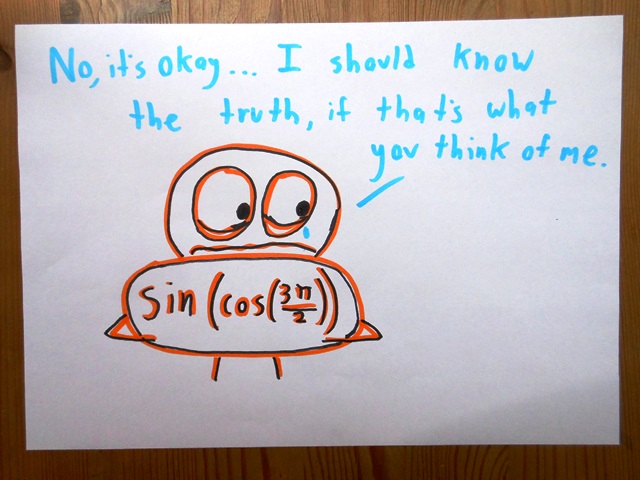 No, it's okay... I should know
the truth, if that's what
you think of me.
sin(cos(3π/2))